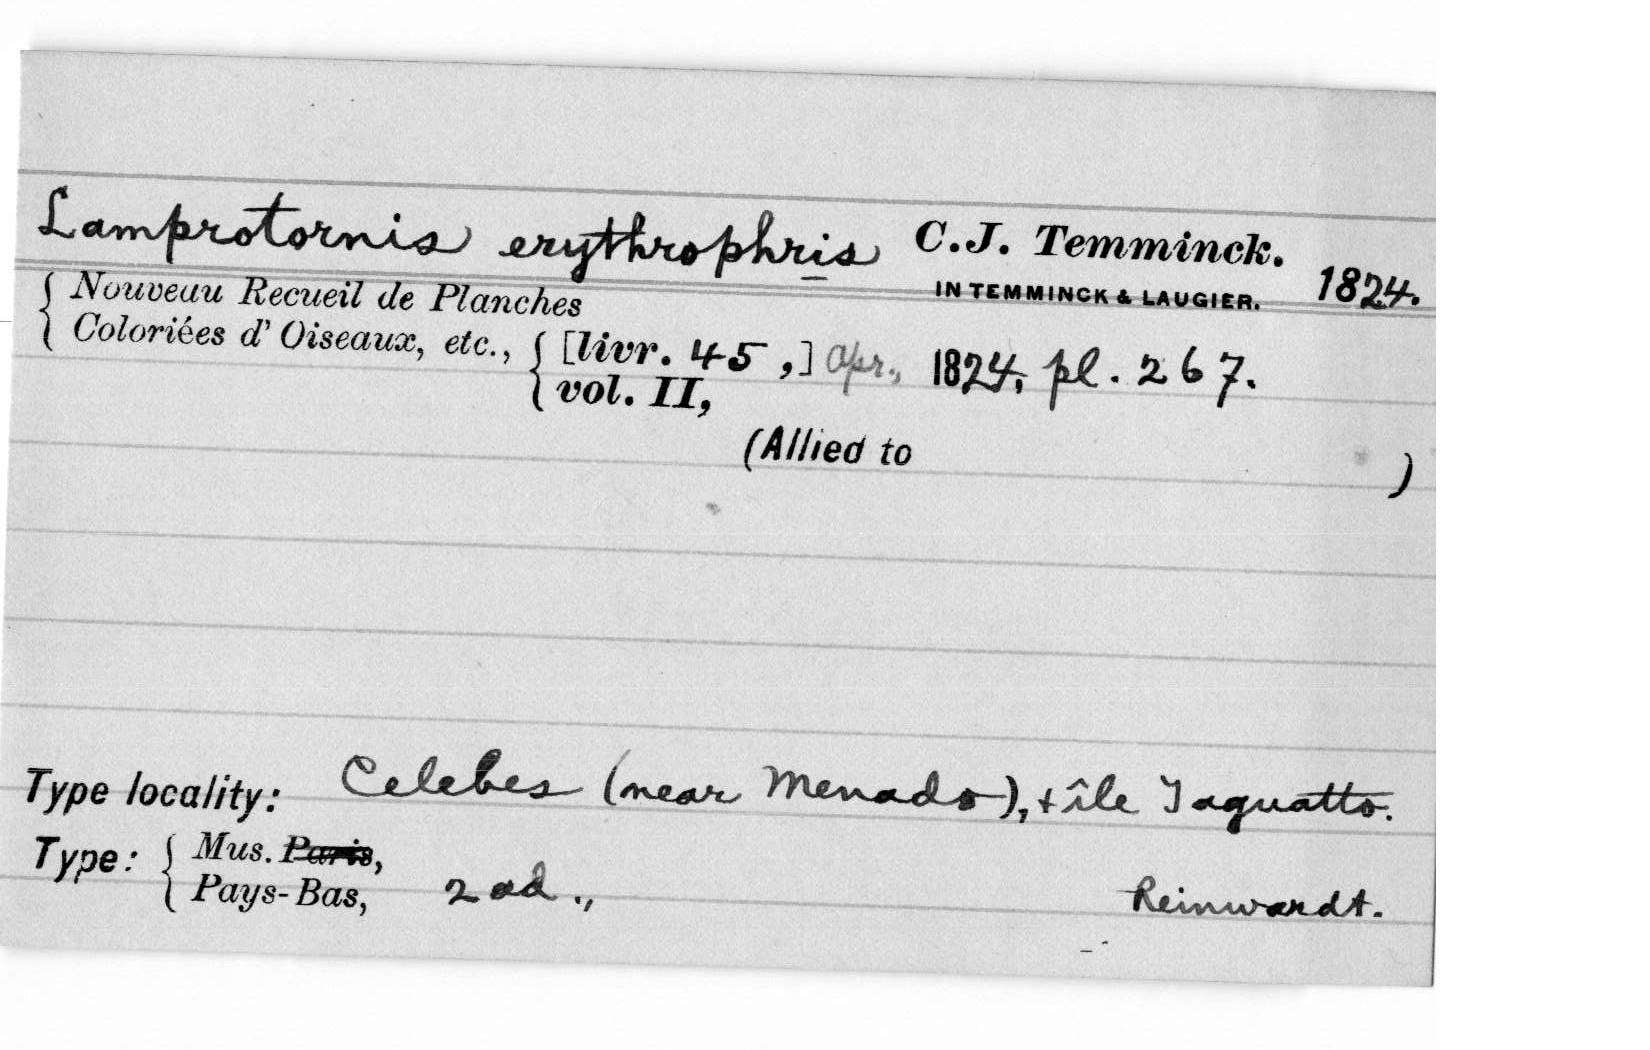 Lamprotornis erythrophris C.J. Temminck.
IN TEMMINCK & LAUGIER. 1824.
Nouveau Recueil de Planches
Coloriées d' Oiseaux, etc., [livr. 45,] Apr., 1824, pl. 267.
vol. II,
(Allied to )
Type locality: Celebes (near Menado), + île Taguatto.
Type: Mus. Paris,
Pays-Bas, 2 ad., Reinwardt.